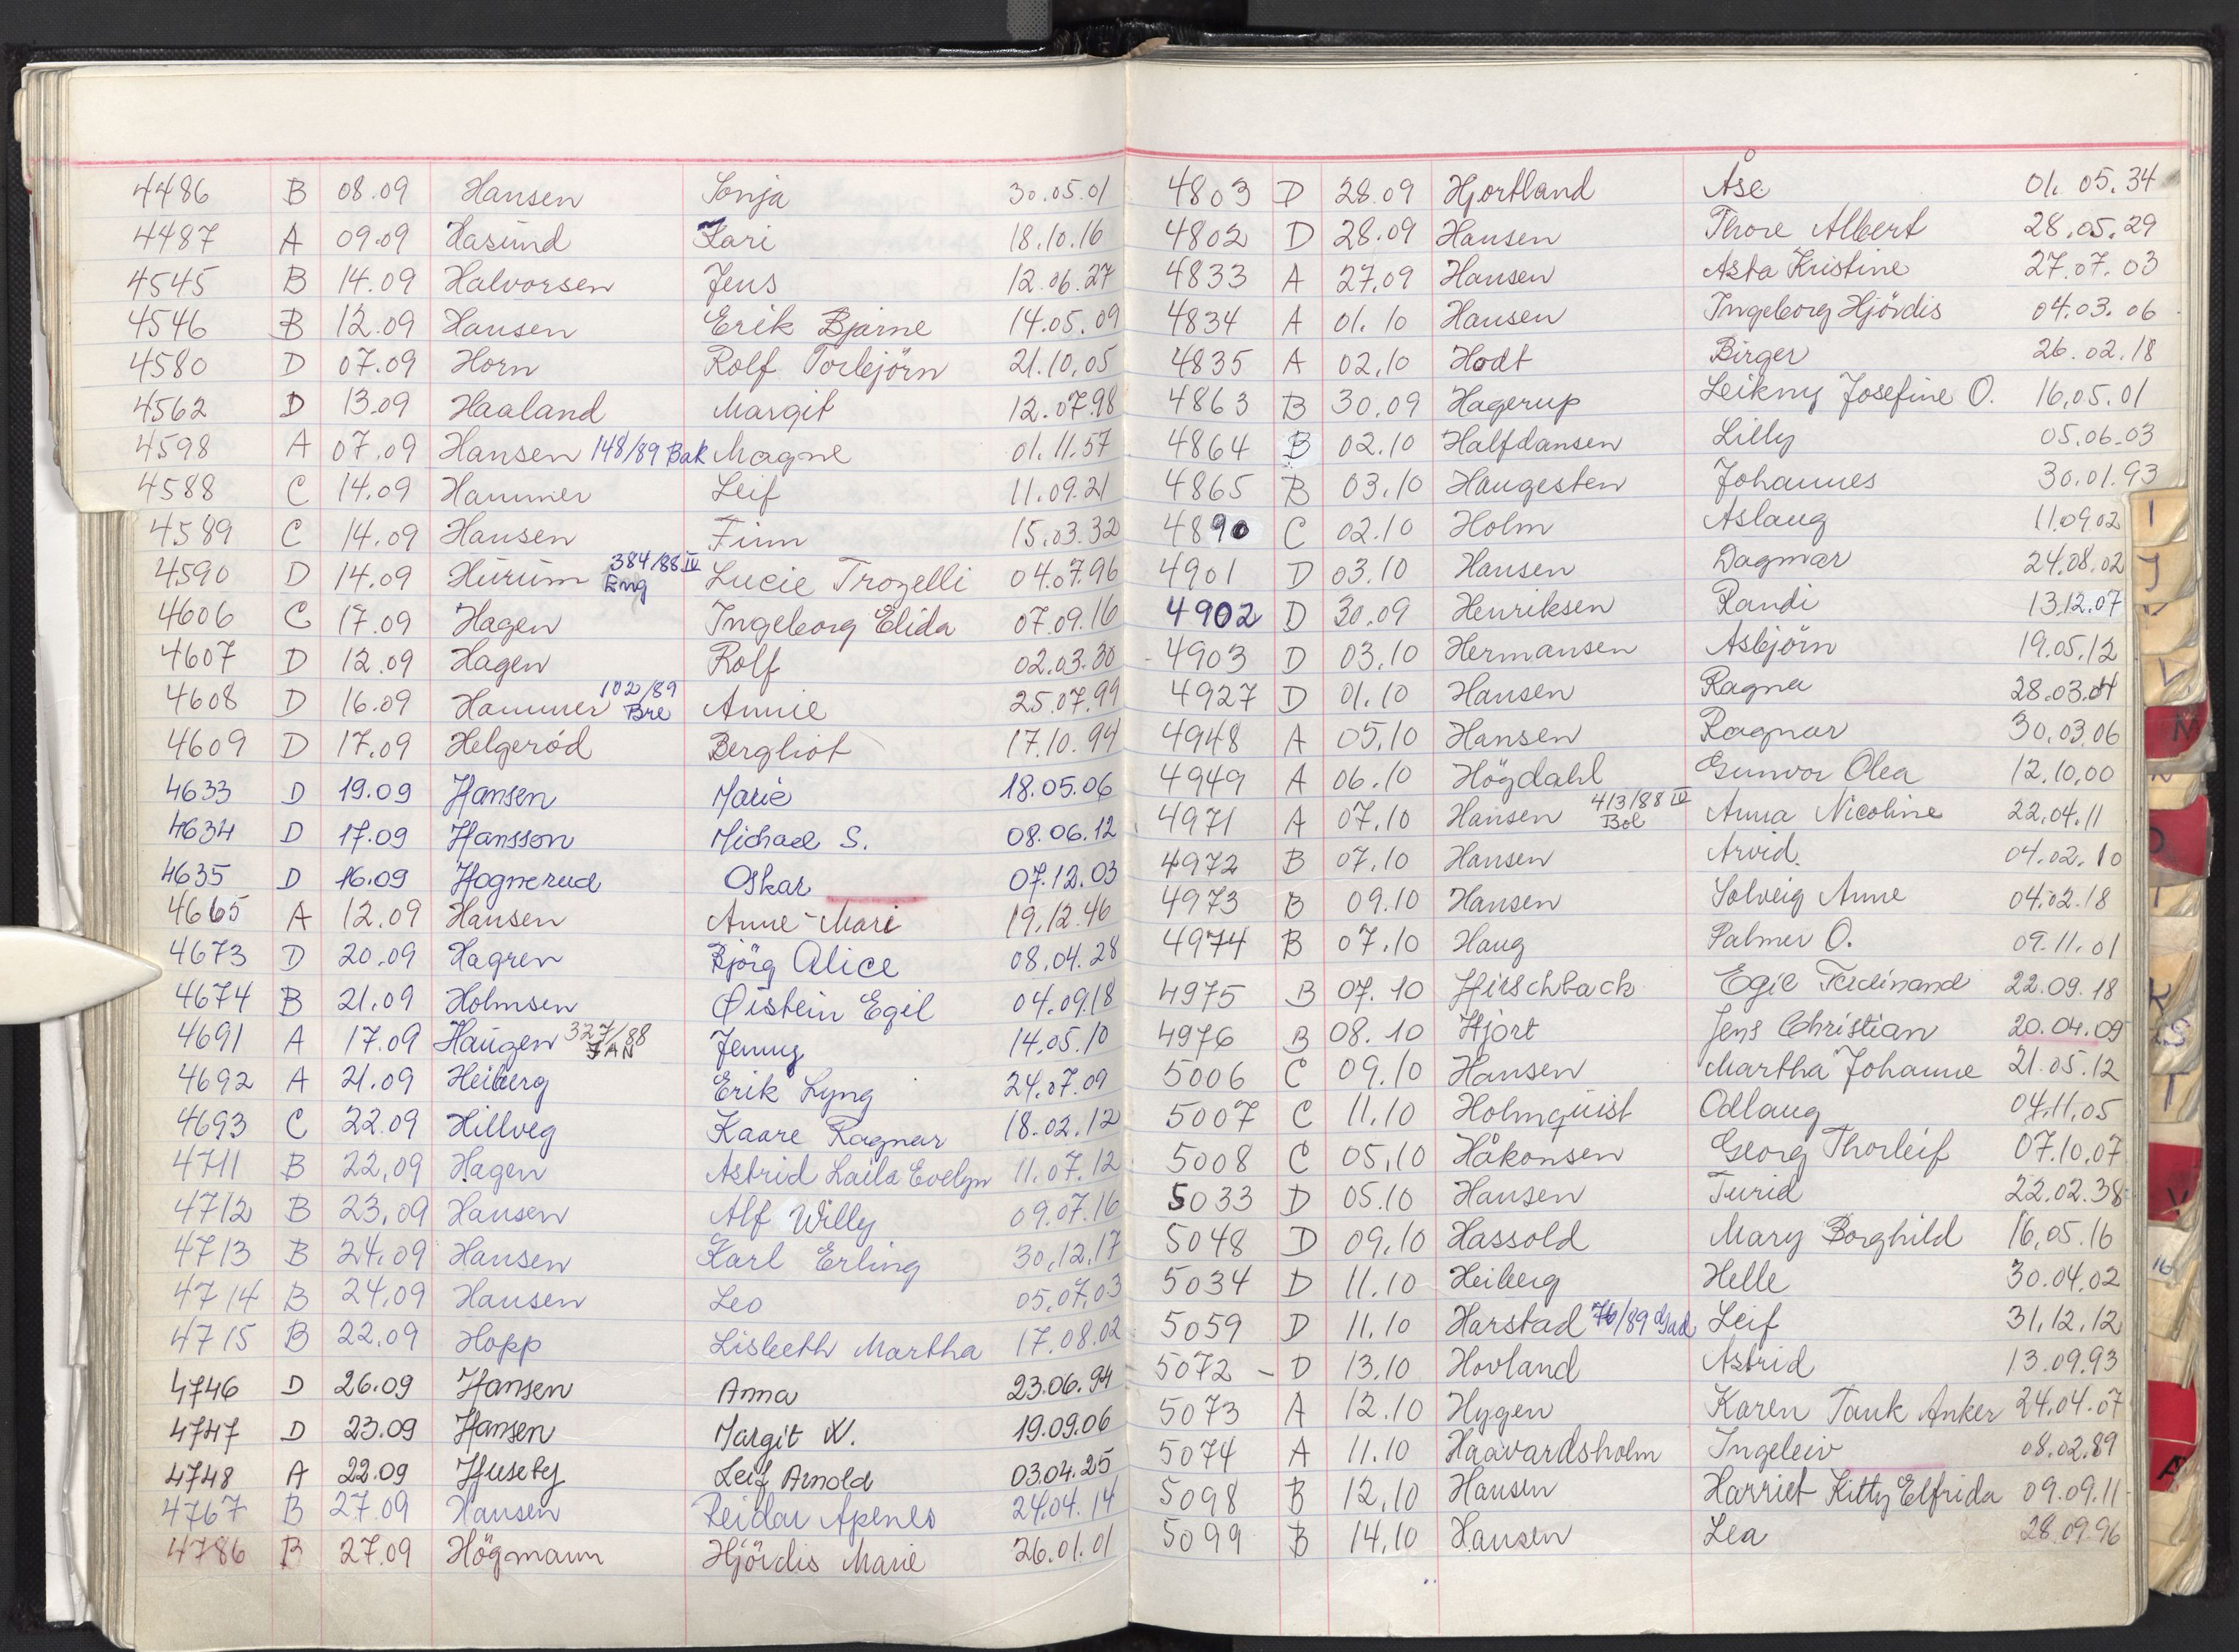 4486 B 08.09 Hansen Sonja 30.05.01
4487 A 09.09 Hasund Kari 18.10.16
4545 B 14.09 Halvorsen Jens 12.06.27
4546 B 12.09 Hansen Erik Bjarne 14.05.09
4580 D 07.09 Horn Rolf Torbjörn 21.10.05
4562 D 13.09 Haaland Margit 12.07.98
4598 A 07.09 Hansen 148/89 Bak Magne 01.11.57
4588 C 14.09 Hammer Leif 11.09.21
4589 C 14.09 Hansen Finn 15.03.32
4590 D 14.09 Hurum 384/88 IV Eng Lucie Trozelli 04.07.96
4606 C 17.09 Hagen Ingeborg Elida 07.09.16
4607 D 12.09 Hagen Rolf 02.03.30
4608 D 16.09 Hammer 102/89 Bre Annie 25.07.99
4609 D 17.09 Helgeród Bergliot 17.10.94
4633 D 19.09 Hansen Marie 18.05.06
4634 D 17.09 Hansson Michael S. 08.06.12
4635 D 16.09 Hognerud Oskar 07.12.03
4665 A 12.09 Hansen Anne-Mari 19.12.46
4673 D 20.09 Hagren Björg Alice 08.04.28
4674 B 21.09 Holmsen Øistein Egil 04.09.18
4691 A 17.09 Haugen 327/88 JAN Jenny 14.05.10
4692 A 21.09 Heiberg Erik Lyng 24.07.09
4693 C 22.09 Hillveg Kaare Ragnar 18.02.12
4711 B 22.09 Hagen Astrid Laila Evelyn 11.07.12
4712 B 23.09 Hansen Alf Willy 09.07.16
4713 B 24.09 Hansen Karl Erling 30.12.17
4714 B 24.09 Hansen Leo 05.07.03
4715 B 22.09 Hopp Lisbeth Martha 17.08.02
4746 D 26.09 Hansen Anna 23.06.94
4747 D 23.09 Hansen Margit W. 19.09.06
4748 A 22.09 Huseby Leif Arnold 03.04.25
4767 B 27.09 Hansen Reidar Apenes 24.04.14
4786 B 27.09 Högmann Hjördis Marie 26.01.01
4803 D 28.09 Hjortland Åse 01.05.34
4802 D 28.09 Hansen Thore Albert 28.05.29
4833 A 27.09 Hansen Asta Kristine 27.07.03
4834 A 01.10 Hansen Ingeborg Hjördis 04.03.06
4835 A 02.10 Hodt Birger 26.02.18
4863 B 30.09 Hagerup Leikny Josefine O. 16.05.01
4864 B 02.10 Halfdansen Lilly 05.06.03
4865 B 03.10 Haugesten Johannes 30.01.93
4890 C 02.10 Holm Aslaug 11.09.02
4901 D 03.10 Hansen Dagmar 24.08.02
4902 D 30.09 Henriksen Randi 13.12.07
4903 D 03.10 Hermansen Asbjörn 19.05.12
4927 D 01.10 Hansen Ragna 28.03.04
4948 A 05.10 Hansen Ragnar 30.03.06
4949 A 06.10 Högdahl Gunvor Olea 12.10.00
4971 A 07.10 Hansen 413/88 IV Bol Anna Nicoline 22.04.11
4972 B 07.10 Hansen Arvid 04.02.10
4973 B 09.10 Hansen Solveig Anne 04.02.18
4974 B 07.10 Haug Palmer O. 09.11.01
4975 B 07.10 Hirschback Egil Ferdinand 22.09.18
4976 B 08.10 Hjort Jens Christian 20.04.09
5006 C 09.10 Hansen Martha Johanne 21.05.12
5007 C 11.10 Holmquist Odlaug 04.11.05
5008 C 05.10 Håkonsen Georg Thorleif 07.10.07
5033 D 05.10 Hansen Turid 22.02.38
5048 D 09.10 Hassold Mary Borghild 16.05.16
5034 D 11.10 Heiberg Helle 30.04.02
5059 D 11.10 Harstad 76/89 Gad Leif 31.12.12
5072 - D 13.10 Hovland Astrid 13.09.93
5073 A 12.10 Hygen Karen Tank Anker 24.04.07
5074 A 11.10 Haavardsholm Ingeleiv 08.02.89
5098 B 12.10 Hansen Harriet Kitty Elfrida 09.09.11
5099 B 14.10 Hansen Lea 28.09.96
I
J
L
M